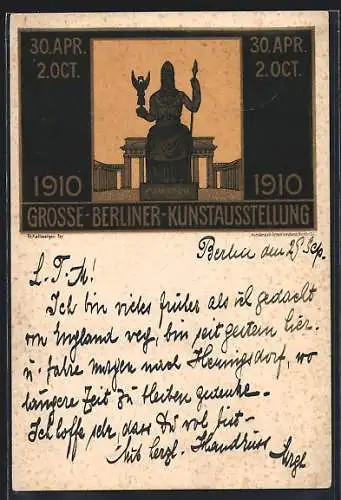 30. APR.
2. OCT.
30. APR.
2. OCT.
1910
1910
GROSSE-BERLINER-KUNSTAUSSTELLUNG
Berlin den 25 Sep.
L. T. M!
Ich bin vieles früher als ich gedacht
von England weg, bin seit gestern hier
u. fahre morgen nach Hennigsdorf, wo
längere Zeit zu bleiben gedenke.
Ich hoffe sehr, dass Du wol bist –
Mit herzl. Handkuss